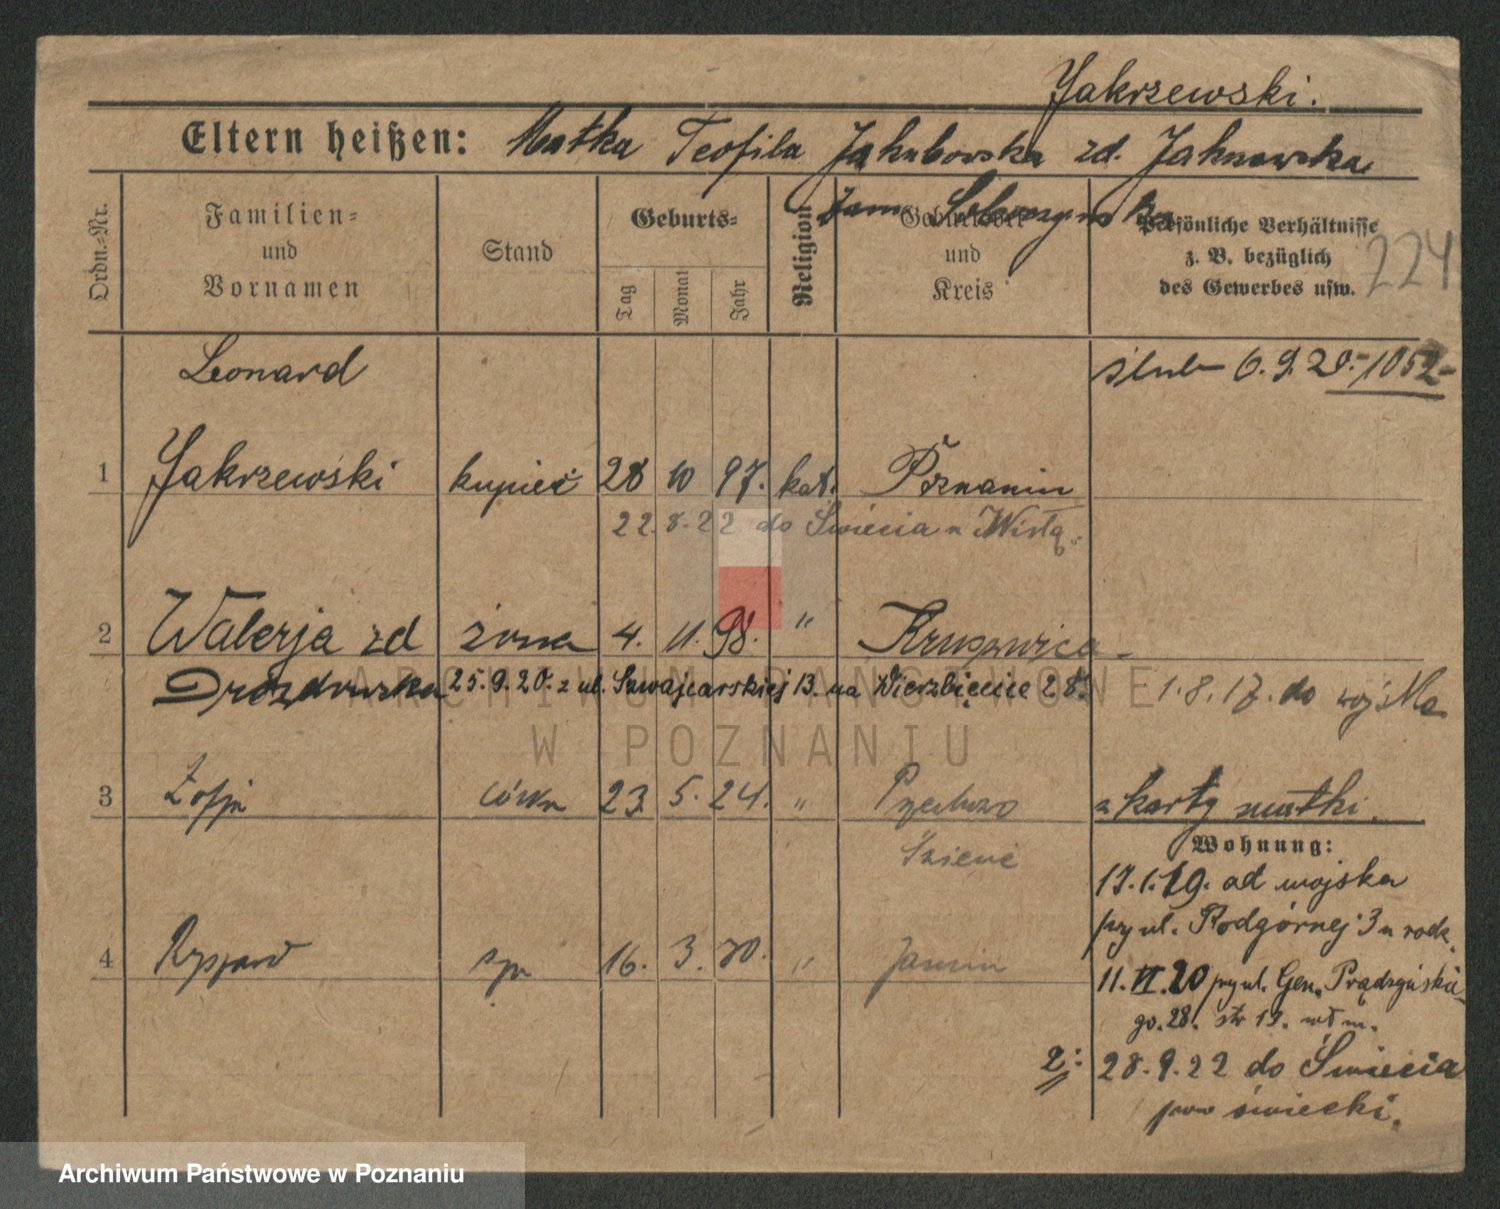 Zakrzewski.
Eltern heißen: Matka Teofila Jakubowska zd. Jahnowska
Ordn.-Nr.
Familien- und Vornamen
Stand
Geburts-
Tag
Monat
Jahr
Religion
Geburtsort und Kreis
Persönliche Verhältnisse z. B. bezüglich des Gewerbes usw.
224
Leonard
ślub 6.9.20.-1052-
1 Zakrzewski kupiec 28 10 97. kat. Poznaniu
22.8.22 do Świecia n Wisłą.
2 Walerja zd żona 4. 11. 98. " Kruszwica
Drozdowska 25.9.20. z ul. Szwajcarskiej 13. na Wierzbięcice 28. 1.8.17. do wojska
3 Zofja córka 23. 5. 24. "
z karty matki.
Wohnung:
17.1.19. od wojska
przy ul. Podgórnej 3 u rodz.
4 Ryszard syn 16. 3. 20. "
11.VI.20 przy ul. Gen. Prądzyńskie-
go. 28. str 13.
2: 28.9.22 do Świecia
pow świecki.
ARCHIWUM PAŃSTWOWE
W POZNANIU
Archiwum Państwowe w Poznaniu